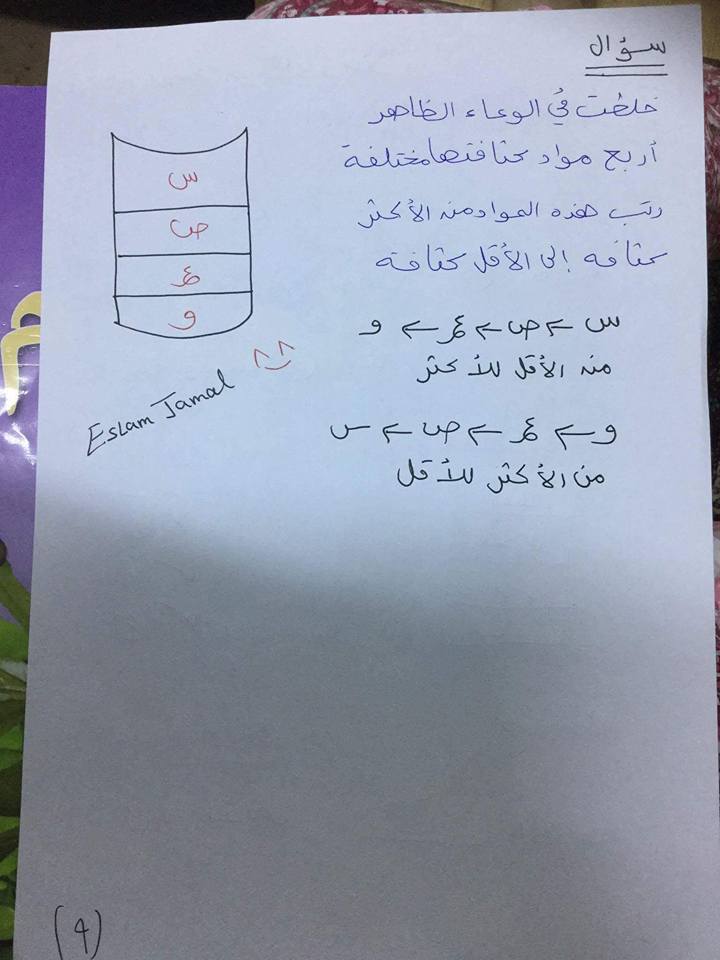 سؤال
خلطت في الوعاء الظاهر
أربع مواد كثافتها مختلفة
رتب هذه المواد من الأكثر
كثافه إلى الأقل كثافة
س
ص
ع
و
س ← ص ← ع ← و
من الأقل للأكثر
و ← ع ← ص ← س
من الأكثر للأقل
Eslam Jamal
(4)